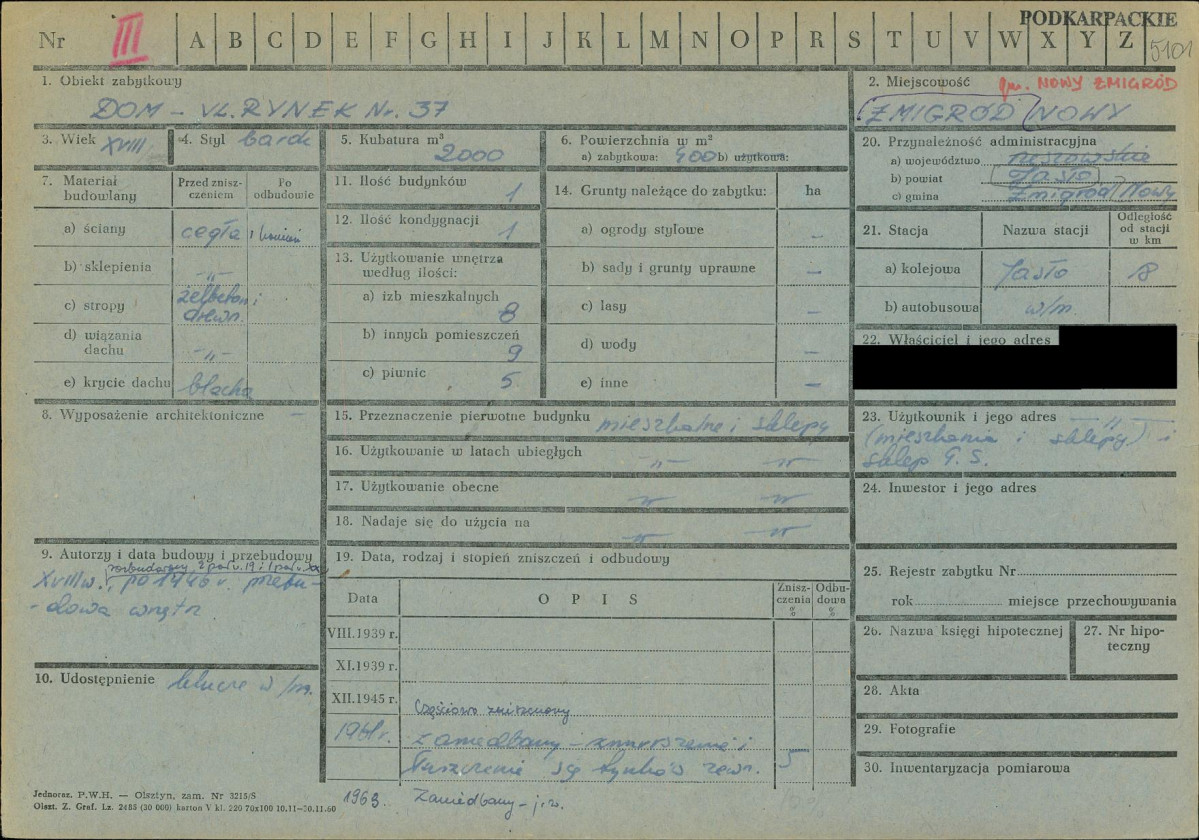 PODKARPACKIE
Nr III A B C D E F G H I J K L M N O P R S T U V W X Y Z 5101
1. Obiekt zabytkowy
DOM – UL. RYNEK Nr. 37
2. Miejscowość gm. NOWY ŻMIGRÓD
ŻMIGRÓD NOWY
3. Wiek XVIII
4. Styl barok
5. Kubatura m³
2000
6. Powierzchnia w m²
a) zabytkowa: 400 b) użytkowa:
20. Przynależność administracyjna
a) województwo rzeszowskie
b) powiat Jasło
c) gmina Żmigród Nowy
7. Materiał budowlany
Przed zniszczeniem
Po odbudowie
a) ściany cegła i kamień
b) sklepienia –„–
c) stropy żelbeton i drewn.
d) wiązania dachu –„–
e) krycie dachu blacha
11. Ilość budynków 1
12. Ilość kondygnacji 1
13. Użytkowanie wnętrza według ilości:
a) izb mieszkalnych 8
b) innych pomieszczeń 9
c) piwnic 5
14. Grunty należące do zabytku: ha
a) ogrody stylowe –
b) sady i grunty uprawne –
c) lasy –
d) wody –
e) inne –
21. Stacja Nazwa stacji Odległość od stacji w km
a) kolejowa Jasło 18
b) autobusowa w/m.
22. Właściciel i jego adres
8. Wyposażenie architektoniczne –
15. Przeznaczenie pierwotne budynku mieszkalne i sklepy
16. Użytkowanie w latach ubiegłych –„– –„–
17. Użytkowanie obecne –„– –„–
18. Nadaje się do użycia na –„– –„–
23. Użytkownik i jego adres –„–
(mieszkania i sklepy) i
sklep G.S.
24. Inwestor i jego adres
9. Autorzy i data budowy i przebudowy
rozbudowany 2 poł. w. 19 i 1 poł. w. XX
XVIII w., po 1946 r. przebu-
-dowa wnętrz
10. Udostępnienie klucze w/m.
19. Data, rodzaj i stopień zniszczeń i odbudowy
Data OPIS Zniszczenia % Odbudowa %
VIII.1939 r.
XI.1939 r.
XII.1945 r. Częściowo zniszczony
1961r. Zaniedbany – zmurszenie i
łuszczenie się tynków zewn. 5
1963. Zaniedbany – j.w.
25. Rejestr zabytku Nr
rok miejsce przechowywania
26. Nazwa księgi hipotecznej
27. Nr hipoteczny
28. Akta
29. Fotografie
30. Inwentaryzacja pomiarowa
Jednoraz. P.W.H. — Olsztyn, zam. Nr 3215/S
Olszt. Z. Graf. Lz. 2488 (30 000) karton V kl. 220 70x100 10.11–30.11.60